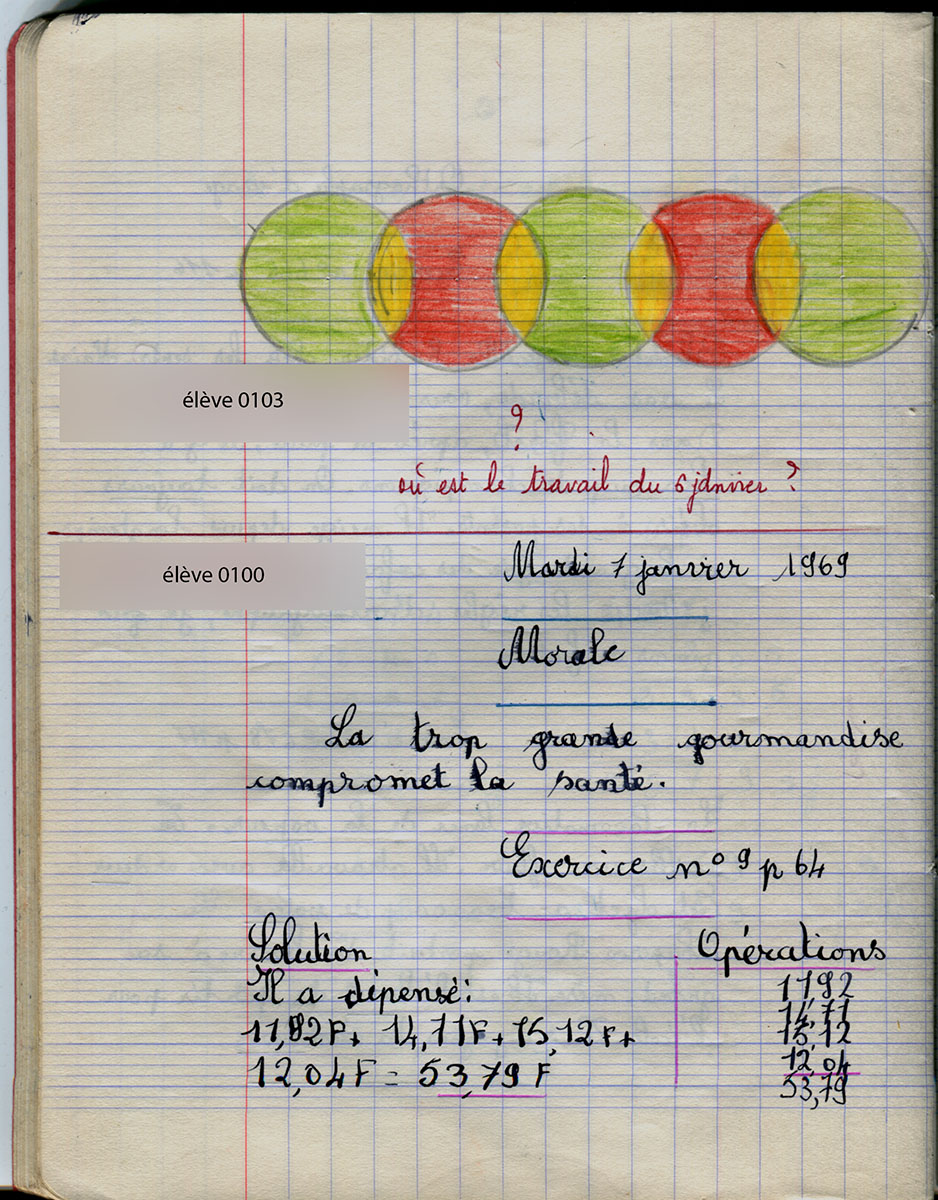 élève 0103
?
où est le travail du 6 janvier ?
élève 0100
Mardi 7 janvier 1969
Morale
La trop grande gourmandise
compromet la santé.
Exercice n° 9 p 64
Solution
Il a dépensé:
11,92F+ 14,71F+15,12F+
12,04F = 53,79 F
Opérations
11,92
14,71
15,12
12,04
53,79